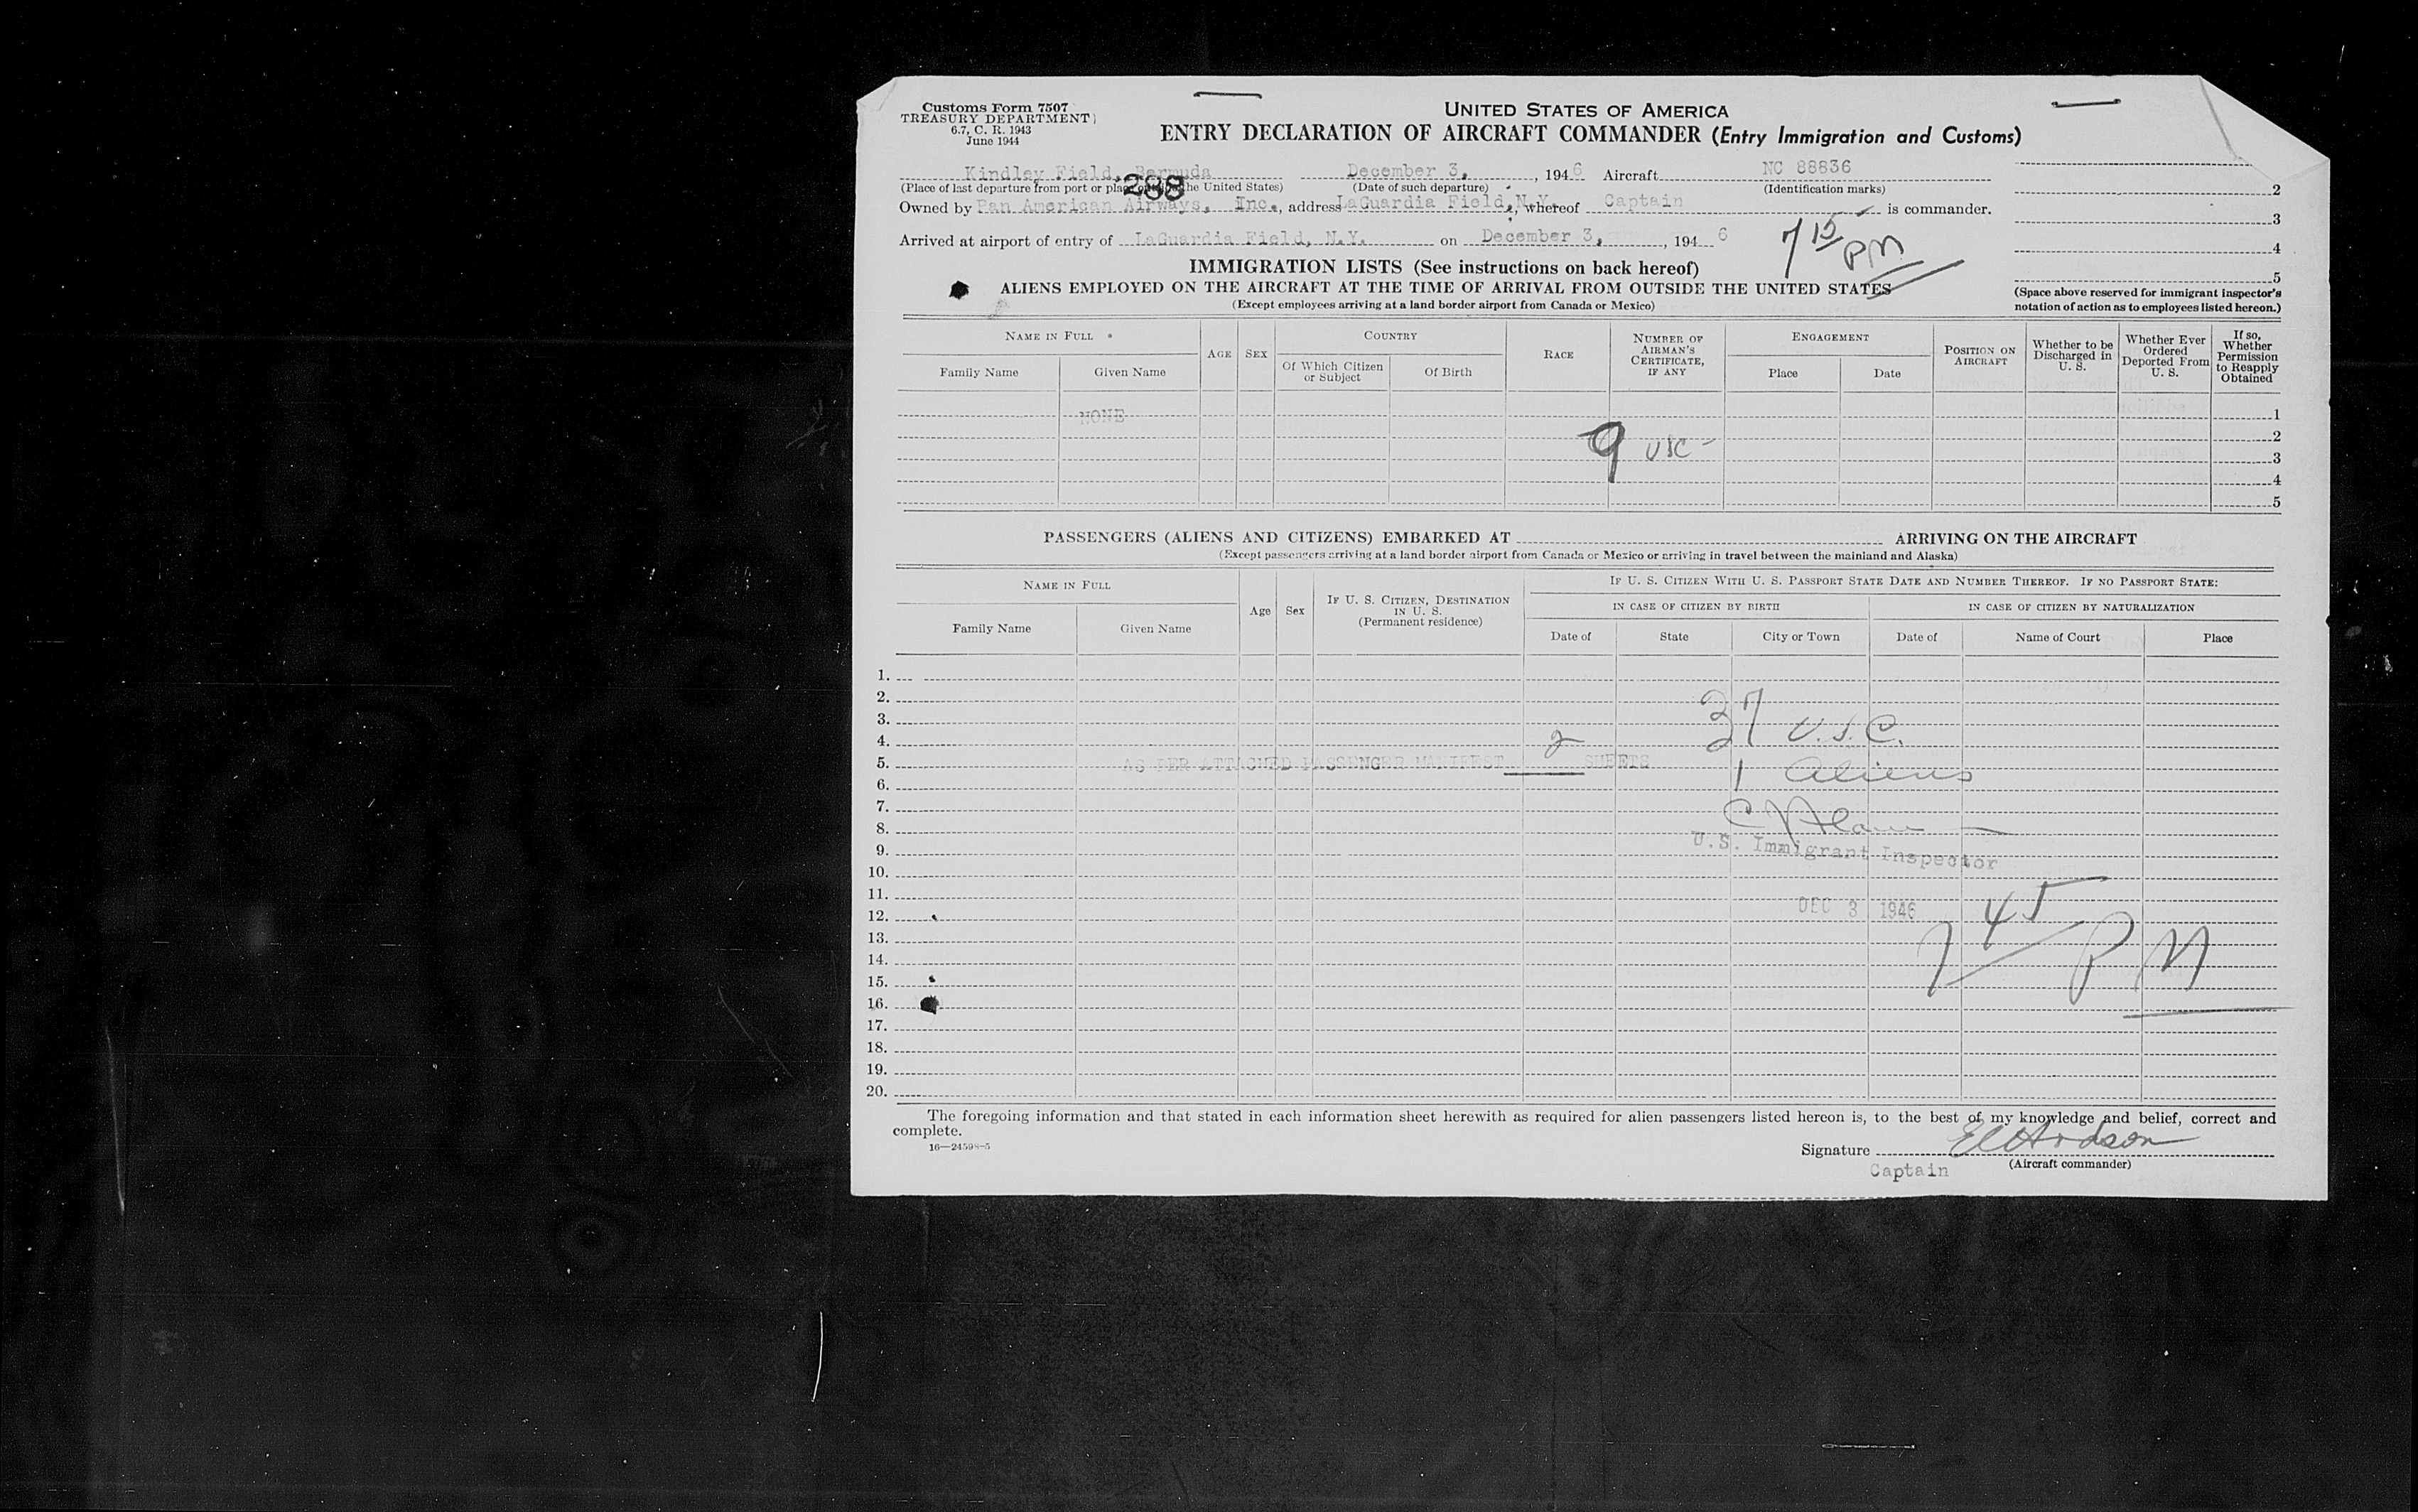 Customs Form 7507
TREASURY DEPARTMENT
6.7, C. R. 1943
June 1944
UNITED STATES OF AMERICA
ENTRY DECLARATION OF AIRCRAFT COMMANDER (Entry Immigration and Customs)
Kindley Field, Bermuda December 3, , 1946 Aircraft NC 88836
288
(Place of last departure from port or place outside the United States) (Date of such departure) (Identification marks)
Owned by Pan American Airways, Inc., address LaGuardia Field, N.Y., whereof Captain is commander.
Arrived at airport of entry of LaGuardia Field, N.Y. on December 3, , 1946
7 15 PM
2
3
4
5
(Space above reserved for immigrant inspector's
notation of action as to employees listed hereon.)
IMMIGRATION LISTS (See instructions on back hereof)
ALIENS EMPLOYED ON THE AIRCRAFT AT THE TIME OF ARRIVAL FROM OUTSIDE THE UNITED STATES
(Except employees arriving at a land border airport from Canada or Mexico)
NAME IN FULL AGE SEX COUNTRY RACE NUMBER OF AIRMAN'S CERTIFICATE, IF ANY ENGAGEMENT POSITION ON AIRCRAFT Whether to be Discharged in U. S. Whether Ever Ordered Deported From U. S. If so, Whether Permission to Reapply Obtained
Family Name Given Name Of Which Citizen or Subject Of Birth Place Date
NONE 1
9 USC - 2
3
4
5
PASSENGERS (ALIENS AND CITIZENS) EMBARKED AT ARRIVING ON THE AIRCRAFT
(Except passengers arriving at a land border airport from Canada or Mexico or arriving in travel between the mainland and Alaska)
NAME IN FULL Age Sex IF U. S. CITIZEN, DESTINATION IN U. S. (Permanent residence) IF U. S. CITIZEN WITH U. S. PASSPORT STATE DATE AND NUMBER THEREOF. IF NO PASSPORT STATE:
IN CASE OF CITIZEN BY BIRTH IN CASE OF CITIZEN BY NATURALIZATION
Family Name Given Name Date of State City or Town Date of Name of Court Place
1.
2.
3. 37 U.S.C.
4.
5. AS PER ATTACHED PASSENGER MANIFEST 2 SHEETS
6. 1 aliens
7.
8.
9. U.S. Immigrant Inspector
10.
11.
12. DEC 3 1946
13. 7 45 PM
14.
15.
16.
17.
18.
19.
20.
The foregoing information and that stated in each information sheet herewith as required for alien passengers listed hereon is, to the best of my knowledge and belief, correct and
complete.
16—24598-5
Signature
(Aircraft commander)
Captain